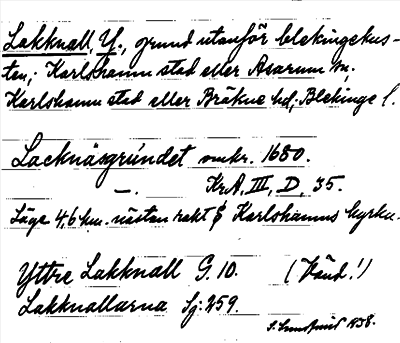 Lakknall, Y., grund utanför blekingekus-
ten; Karlshamn stad eller Asarum sn;
Karlshamn stad eller Bräkne hd; Blekinge l.
Lacknäsgrúndet omkr. 1680.
—. Kr.A. III, D, 35.
Läge 4,6 km. nästan rakt S Karlshamns kyrka.
Yttre Lakknall G. 10. (Vänd!)
Lakknallarna Sj. 259.
1938.